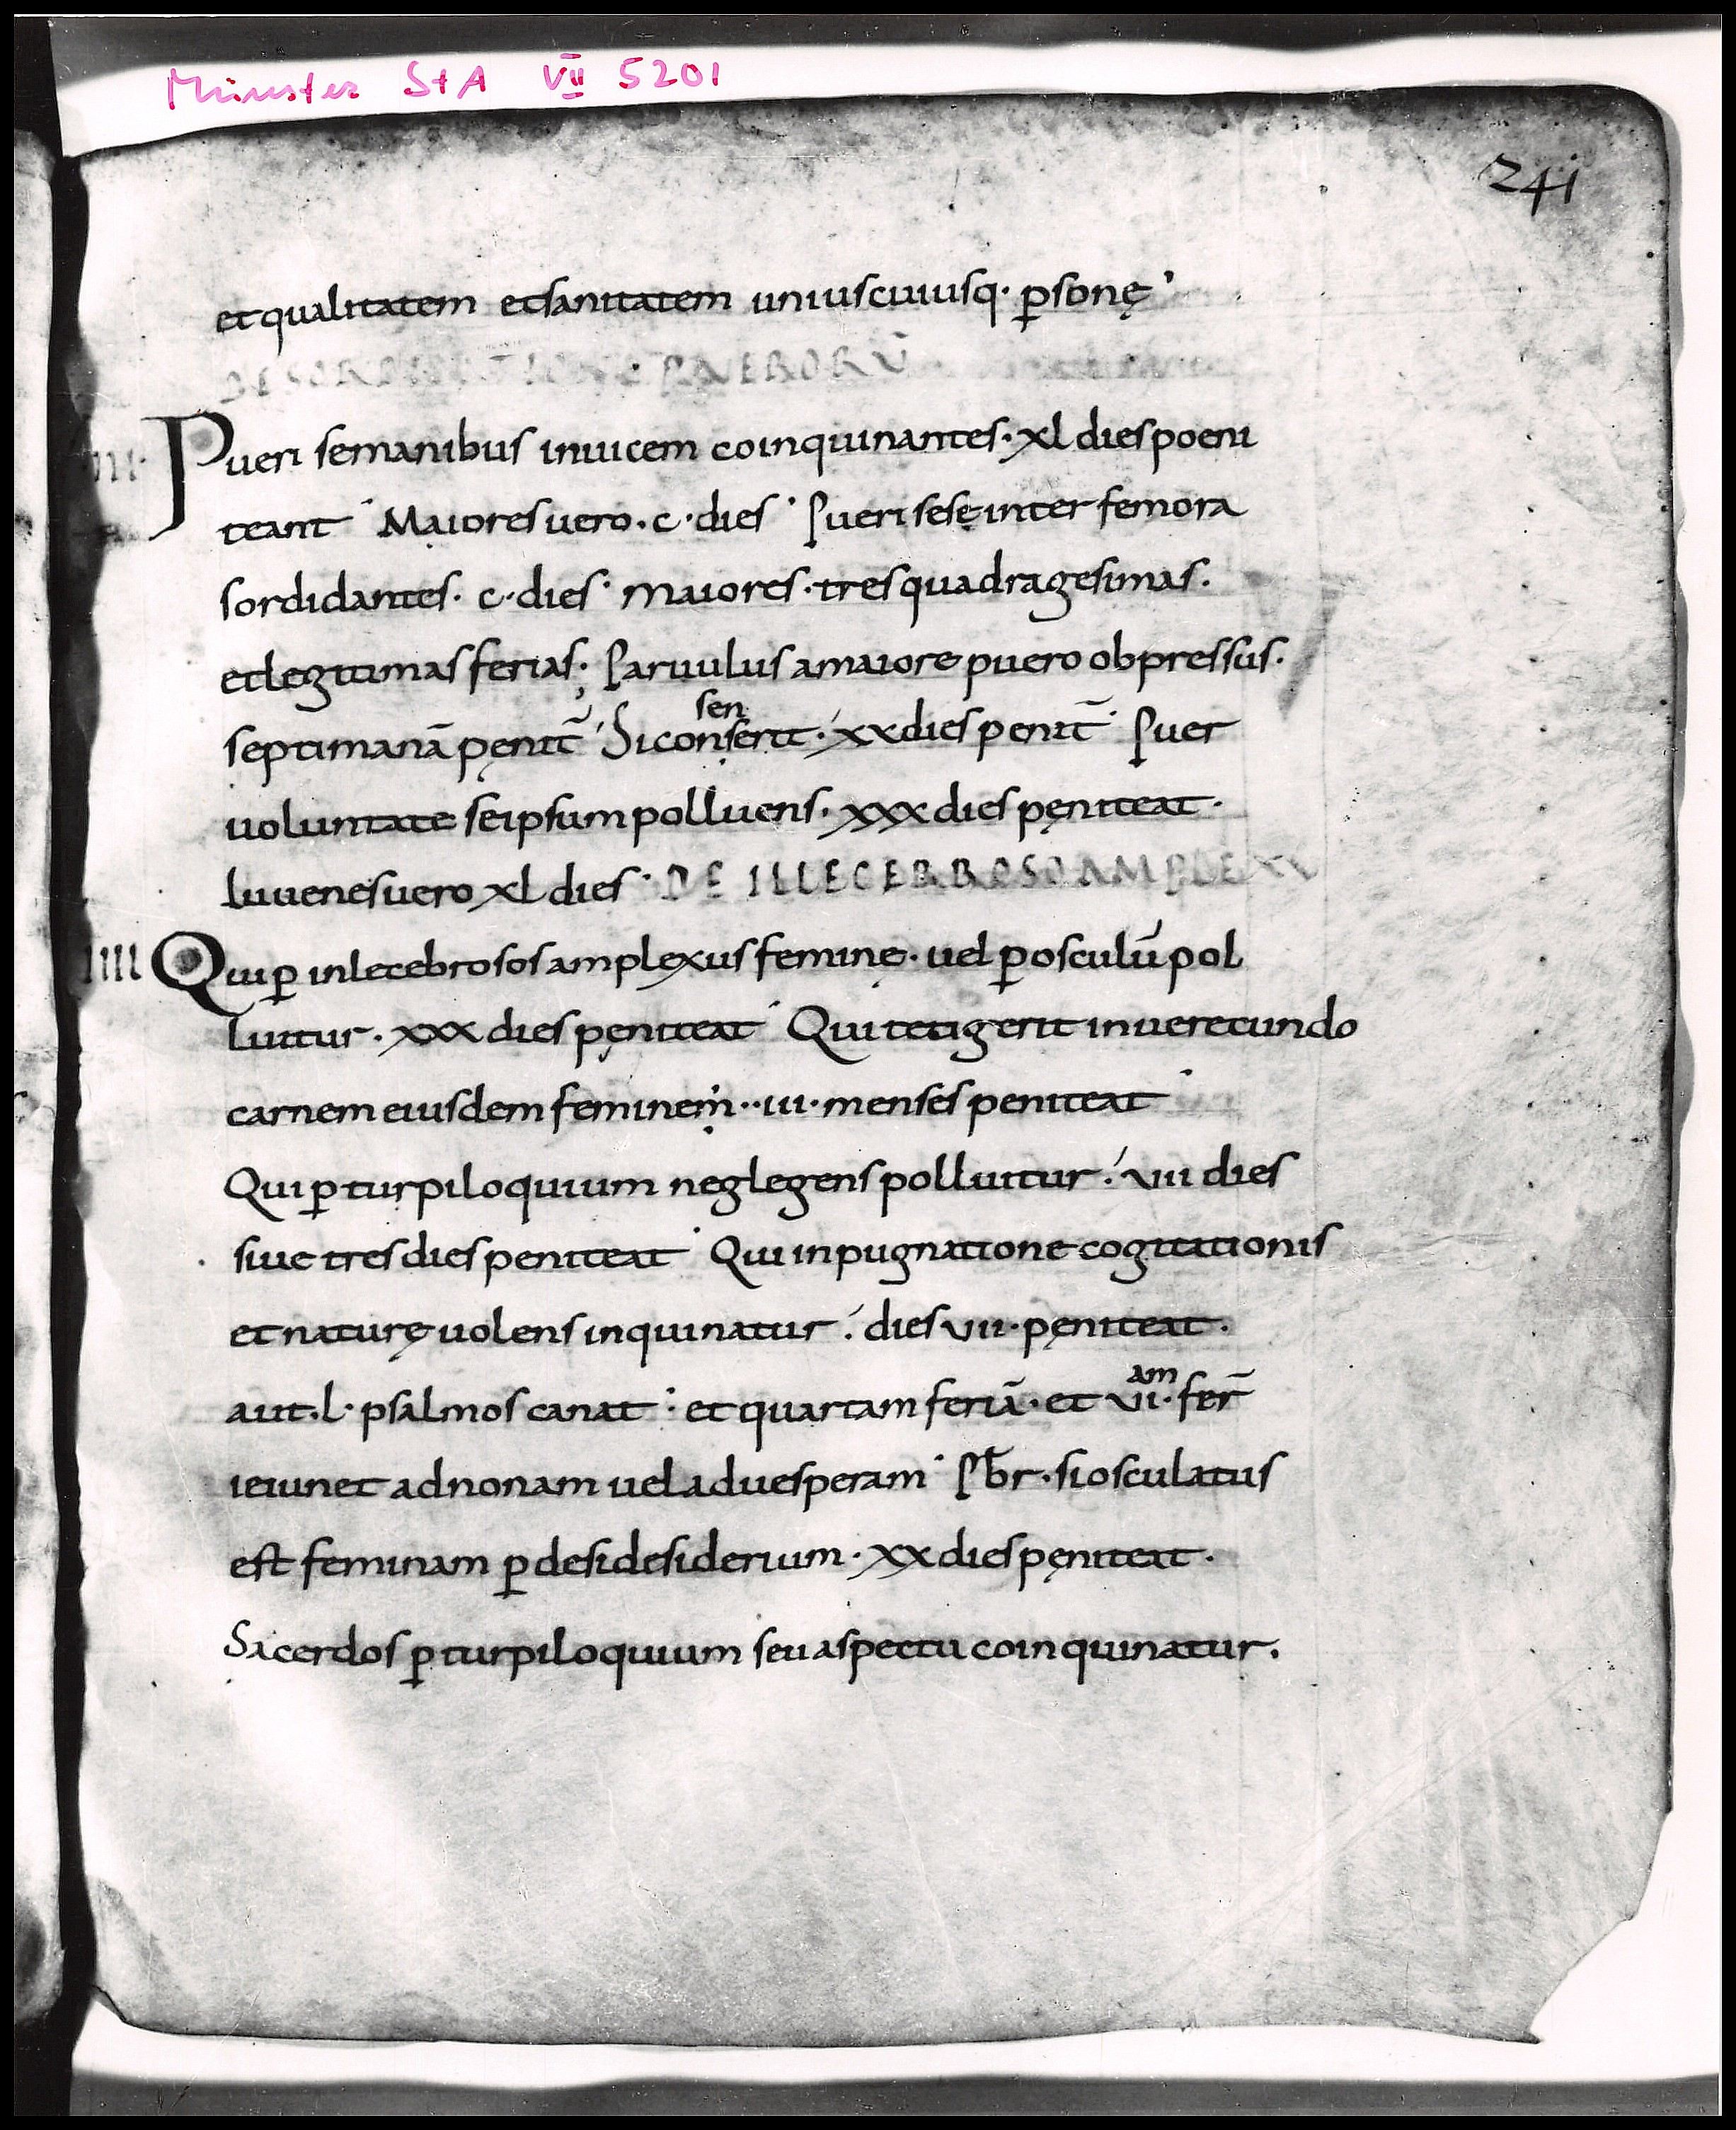 Münster StA VII 5201
241
et qualitatem et sanitatem uniuscuiusq· p̱sonę
DE SORDIDATIONE PUERORŪ
III· Pueri se manibus inuicem coinquinantes· xl dies poeni
teant Maiores uero· c· dies Pueri sesę inter femora
sordidantes· c· dies maiores· tres quadragesimas·
et legitimas ferias; Paruulus a maiore puero obpressus·
septimanā pęnit̄ Si con
sen
serit· xx dies penit̄ Puer
uoluntate se ipsum polluens· xxx dies pęniteat·
Iuuenes uero xl dies DE ILLECEBROSO AMPLEXU
IIII Qui p̱ inlecebrosos amplexus feminę· uel p̱ osculū pol
luitur· xxx dies pęniteat Qui tetigerit inuerecundo
carnem eiusdem feminem·· iii· menses peniteat
Qui p̱ turpiloquium neglegens polluitur· vii dies
siue tres dies peniteat Qui inpugnatione cogitationis
et naturę uolens inquinatur· dies vii· pęniteat·
aut· l· psalmos canat· et quartam feriā· et vi·
am
fer̄
ieiunet ad nonam uel ad uesperam Pb̄r· si osculatus
est feminam p̱ desidesiderium· xx dies pęniteat·
Sacerdos p̱ turpiloquium seu aspectu coinquinatur·